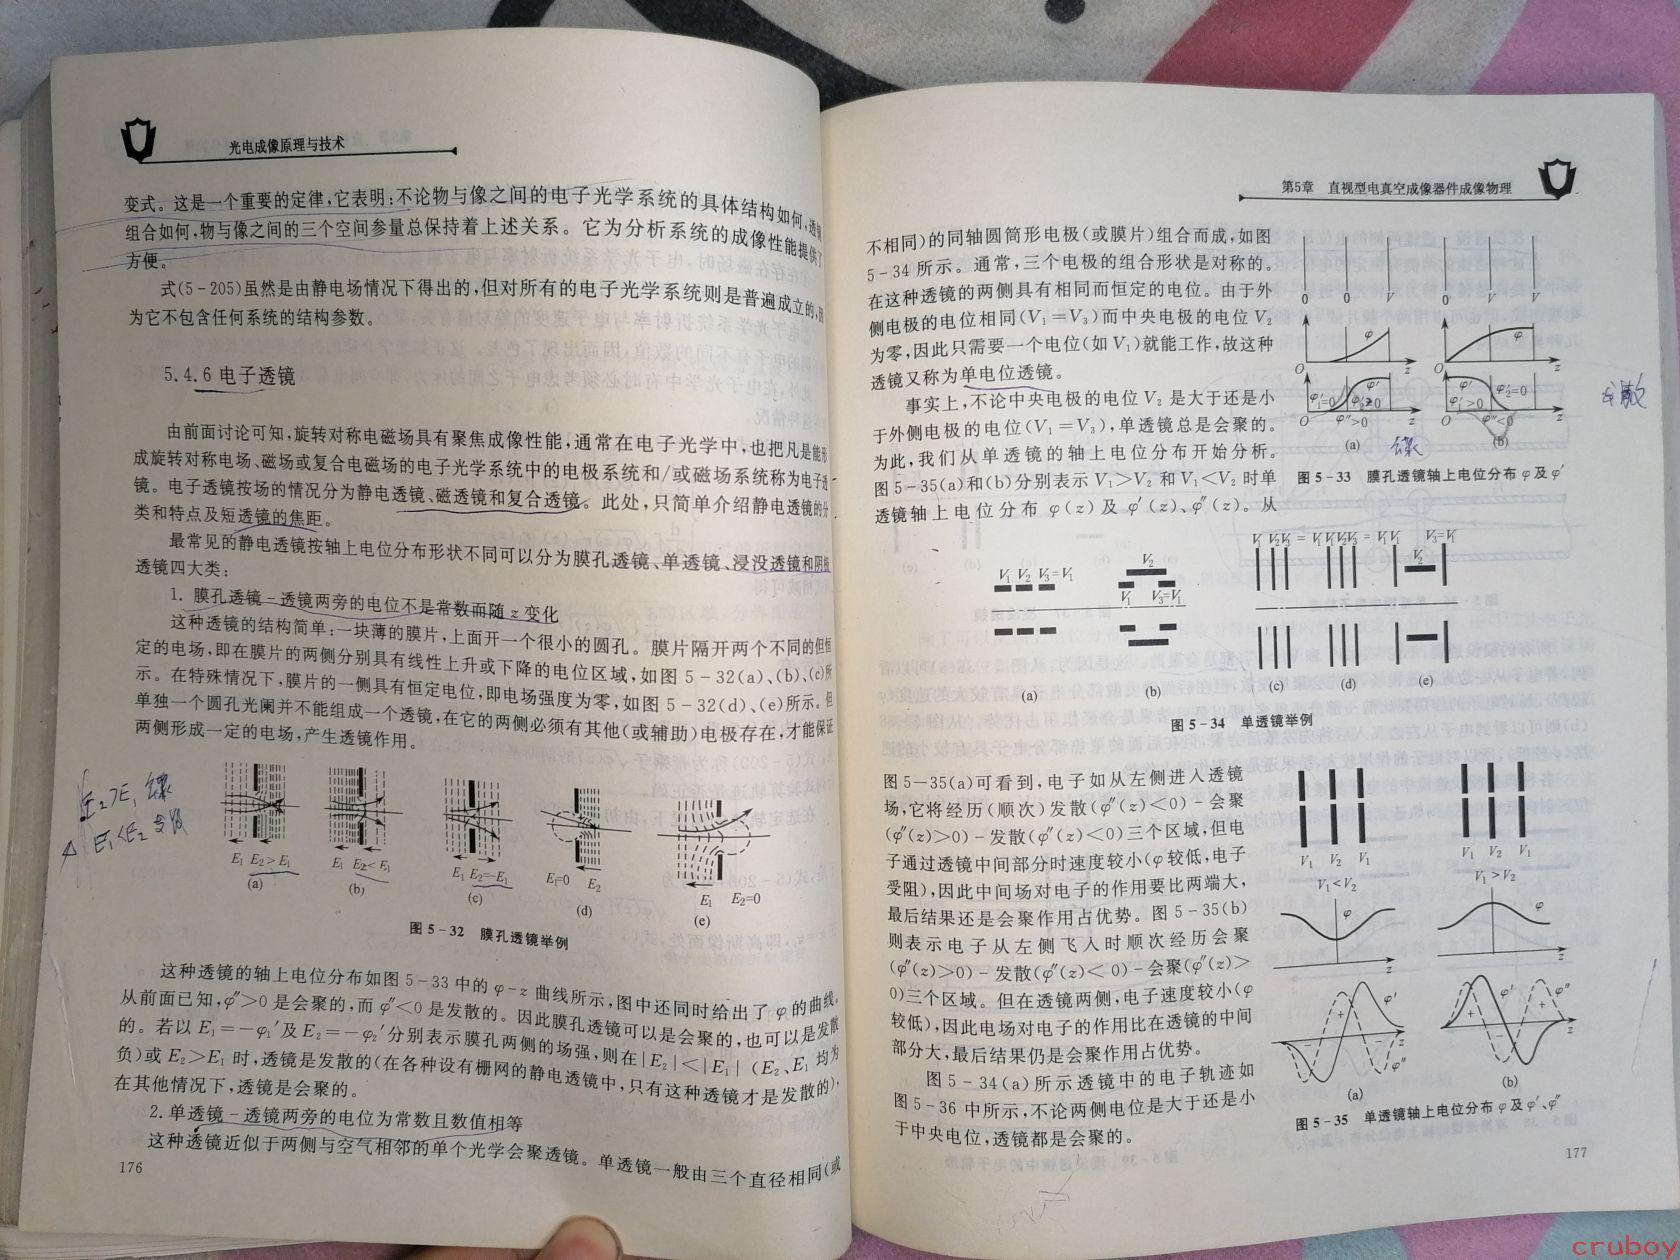 光电成像原理与技术
变式。这是一个重要的定律,它表明:不论物与像之间的电子光学系统的具体结构如何,透镜
组合如何,物与像之间的三个空间参量总保持着上述关系。它为分析系统的成像性能提供了
方便。
式(5-205)虽然是由静电场情况下得出的,但对所有的电子光学系统则是普遍成立的,因
为它不包含任何系统的结构参数。
5.4.6 电子透镜
由前面讨论可知,旋转对称电磁场具有聚焦成像性能,通常在电子光学中,也把凡是能形
成旋转对称电场、磁场或复合电磁场的电子光学系统中的电极系统和/或磁场系统称为电子透
镜。电子透镜按场的情况分为静电透镜、磁透镜和复合透镜。此处,只简单介绍静电透镜的分
类和特点及短透镜的焦距。
最常见的静电透镜按轴上电位分布形状不同可以分为膜孔透镜、单透镜、浸没透镜和阴极
透镜四大类:
1. 膜孔透镜-透镜两旁的电位不是常数而随 z 变化
这种透镜的结构简单:一块薄的膜片,上面开一个很小的圆孔。膜片隔开两个不同的但恒
定的电场,即在膜片的两侧分别具有线性上升或下降的电位区域,如图 5-32(a)、(b)、(c)所
示。在特殊情况下,膜片的一侧具有恒定电位,即电场强度为零,如图 5-32(d)、(e)所示。但
单独一个圆孔光阑并不能组成一个透镜,在它的两侧必须有其他(或辅助)电极存在,才能保证
两侧形成一定的电场,产生透镜作用。
E₂>E₁
E₁<E₂ 发散
E₁ E₂>E₁
(a)
E₁ E₂<E₁
(b)
E₁ E₂=-E₁
(c)
E₁=0 E₂
(d)
E₁ E₂=0
(e)
图 5-32 膜孔透镜举例
这种透镜的轴上电位分布如图 5-33 中的 φ-z 曲线所示,图中还同时给出了 φ 的曲线。
从前面已知,φ″>0 是会聚的,而 φ″<0 是发散的。因此膜孔透镜可以是会聚的,也可以是发散
的。若以 E₁=-φ₁′及 E₂=-φ₂′分别表示膜孔两侧的场强,则在|E₂|<|E₁|(E₂、E₁ 均为
负)或 E₂>E₁ 时,透镜是发散的(在各种设有栅网的静电透镜中,只有这种透镜才是发散的),
在其他情况下,透镜是会聚的。
2. 单透镜-透镜两旁的电位为常数且数值相等
这种透镜近似于两侧与空气相邻的单个光学会聚透镜。单透镜一般由三个直径相同(或
176
第5章 直视型电真空成像器件成像物理
不相同)的同轴圆筒形电极(或膜片)组合而成,如图
5-34 所示。通常,三个电极的组合形状是对称的。
在这种透镜的两侧具有相同而恒定的电位。由于外
侧电极的电位相同(V₁=V₃)而中央电极的电位 V₂
为零,因此只需要一个电位(如 V₁)就能工作,故这种
透镜又称为单电位透镜。
事实上,不论中央电极的电位 V₂ 是大于还是小
于外侧电极的电位(V₁=V₃),单透镜总是会聚的。
为此,我们从单透镜的轴上电位分布开始分析。
图 5-35(a)和(b)分别表示 V₁>V₂ 和 V₁<V₂ 时单
透镜轴上电位分布 φ(z)及 φ′(z)、φ″(z)。从
0 0 V
0 V V
φ
O z
φ
O z
φ′₁=0 φ′ φ′₂>0
φ″>0
O z
φ′
φ′₁>0 φ′₂=0
φ″<0
O z
(a)
(b)
图 5-33 膜孔透镜轴上电位分布 φ 及 φ′
V₁ V₂ V₃=V₁
(a)
V₂
V₁ V₃=V₁
(b)
V₁ V₂V₃ = V₁V₁V₂V₃ = V₁V₁ V₃=V₁
V₂
(c)
(d)
(e)
图 5-34 单透镜举例
图 5—35(a)可看到,电子如从左侧进入透镜
场,它将经历(顺次)发散(φ″(z)<0)-会聚
(φ″(z)>0)-发散(φ″(z)<0)三个区域,但电
子通过透镜中间部分时速度较小(φ 较低,电子
受阻),因此中间场对电子的作用要比两端大,
最后结果还是会聚作用占优势。图 5-35(b)
则表示电子从左侧飞入时顺次经历会聚
(φ″(z)>0)-发散(φ″(z)<0)-会聚(φ″(z)>
0)三个区域。但在透镜两侧,电子速度较小(φ
较低),因此电场对电子的作用比在透镜的中间
部分大,最后结果仍是会聚作用占优势。
图 5-34(a)所示透镜中的电子轨迹如
图 5-36 中所示,不论两侧电位是大于还是小
于中央电位,透镜都是会聚的。
V₁ V₂ V₁
V₁<V₂
φ
z
φ′
+
- -
z
φ″
(a)
V₁ V₂ V₁
V₁>V₂
φ
z
φ′ φ″
+ - +
z
(b)
图 5-35 单透镜轴上电位分布 φ 及 φ′、φ″
177
cruboy